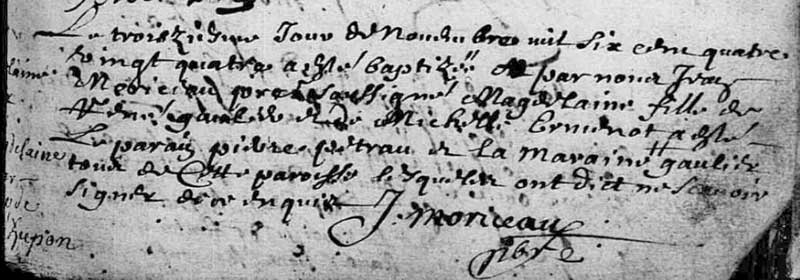 Le troiziesme Jour de Novembre mil six cent quatre
vingt quatre a esté baptizée par nous Jean
Moriceau pretre soussigné Magdelaine fille de
René gaulier et de Michelle a esté
Le parain pierre petrau et La maraine gaulier
tous de Cette paroisse lesquels ont dict ne scavoir
signer de ce enquis J. moriceau
pbre
laine
delaine
dupon